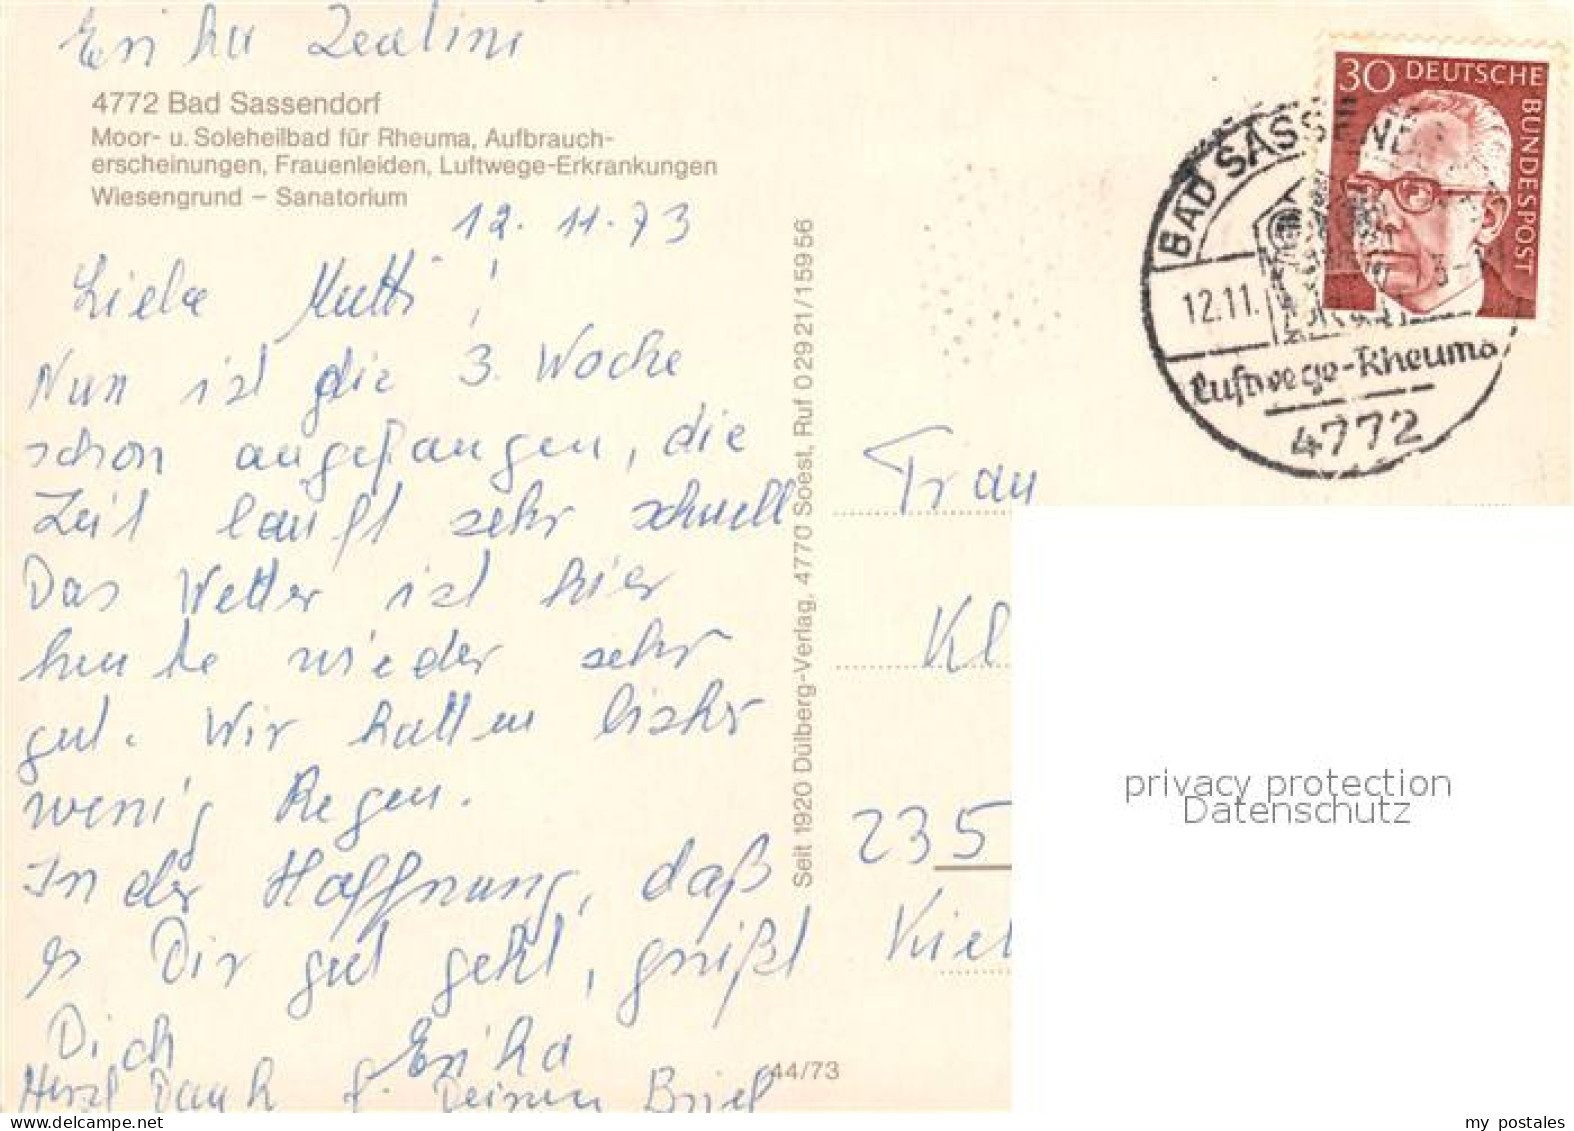 Erika
4772 Bad Sassendorf
Moor- u. Soleheilbad für Rheuma, Aufbrauch-
erscheinungen, Frauenleiden, Luftwege-Erkrankungen
Wiesengrund – Sanatorium
12. 11. 73
Liebe Mutti!
Nun ist die 3. Woche
schon angefangen, die
Zeit läuft sehr schnell
Das Wetter ist hier
heute wieder sehr
gut. Wir hatten bisher
wenig Regen.
In der Hoffnung, daß
es Dir gut geht, grüßt
Dich Erika
Herzl Dank f. Deinen Brief
44/73
Seit 1920 Dülberg-Verlag, 4770 Soest, Ruf 0 29 21/1 59 56
30 DEUTSCHE
BUNDESPOST
BAD SASSEND
12.11. 73-1
Luftwege-Rheuma
4772
Frau
Kl
235
Kiel
privacy protection
Datenschutz
my postales